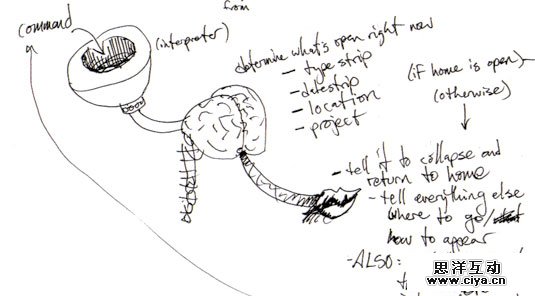 from
command
(interpreter)
determine what's open right now
- type strip
- datestrip
- location
- project
(if home is open)
(otherwise)
- tell it to collapse and
return to home
- tell everything else
where to go/
how to appear
- ALSO:
思洋互动
www.ciya.cn